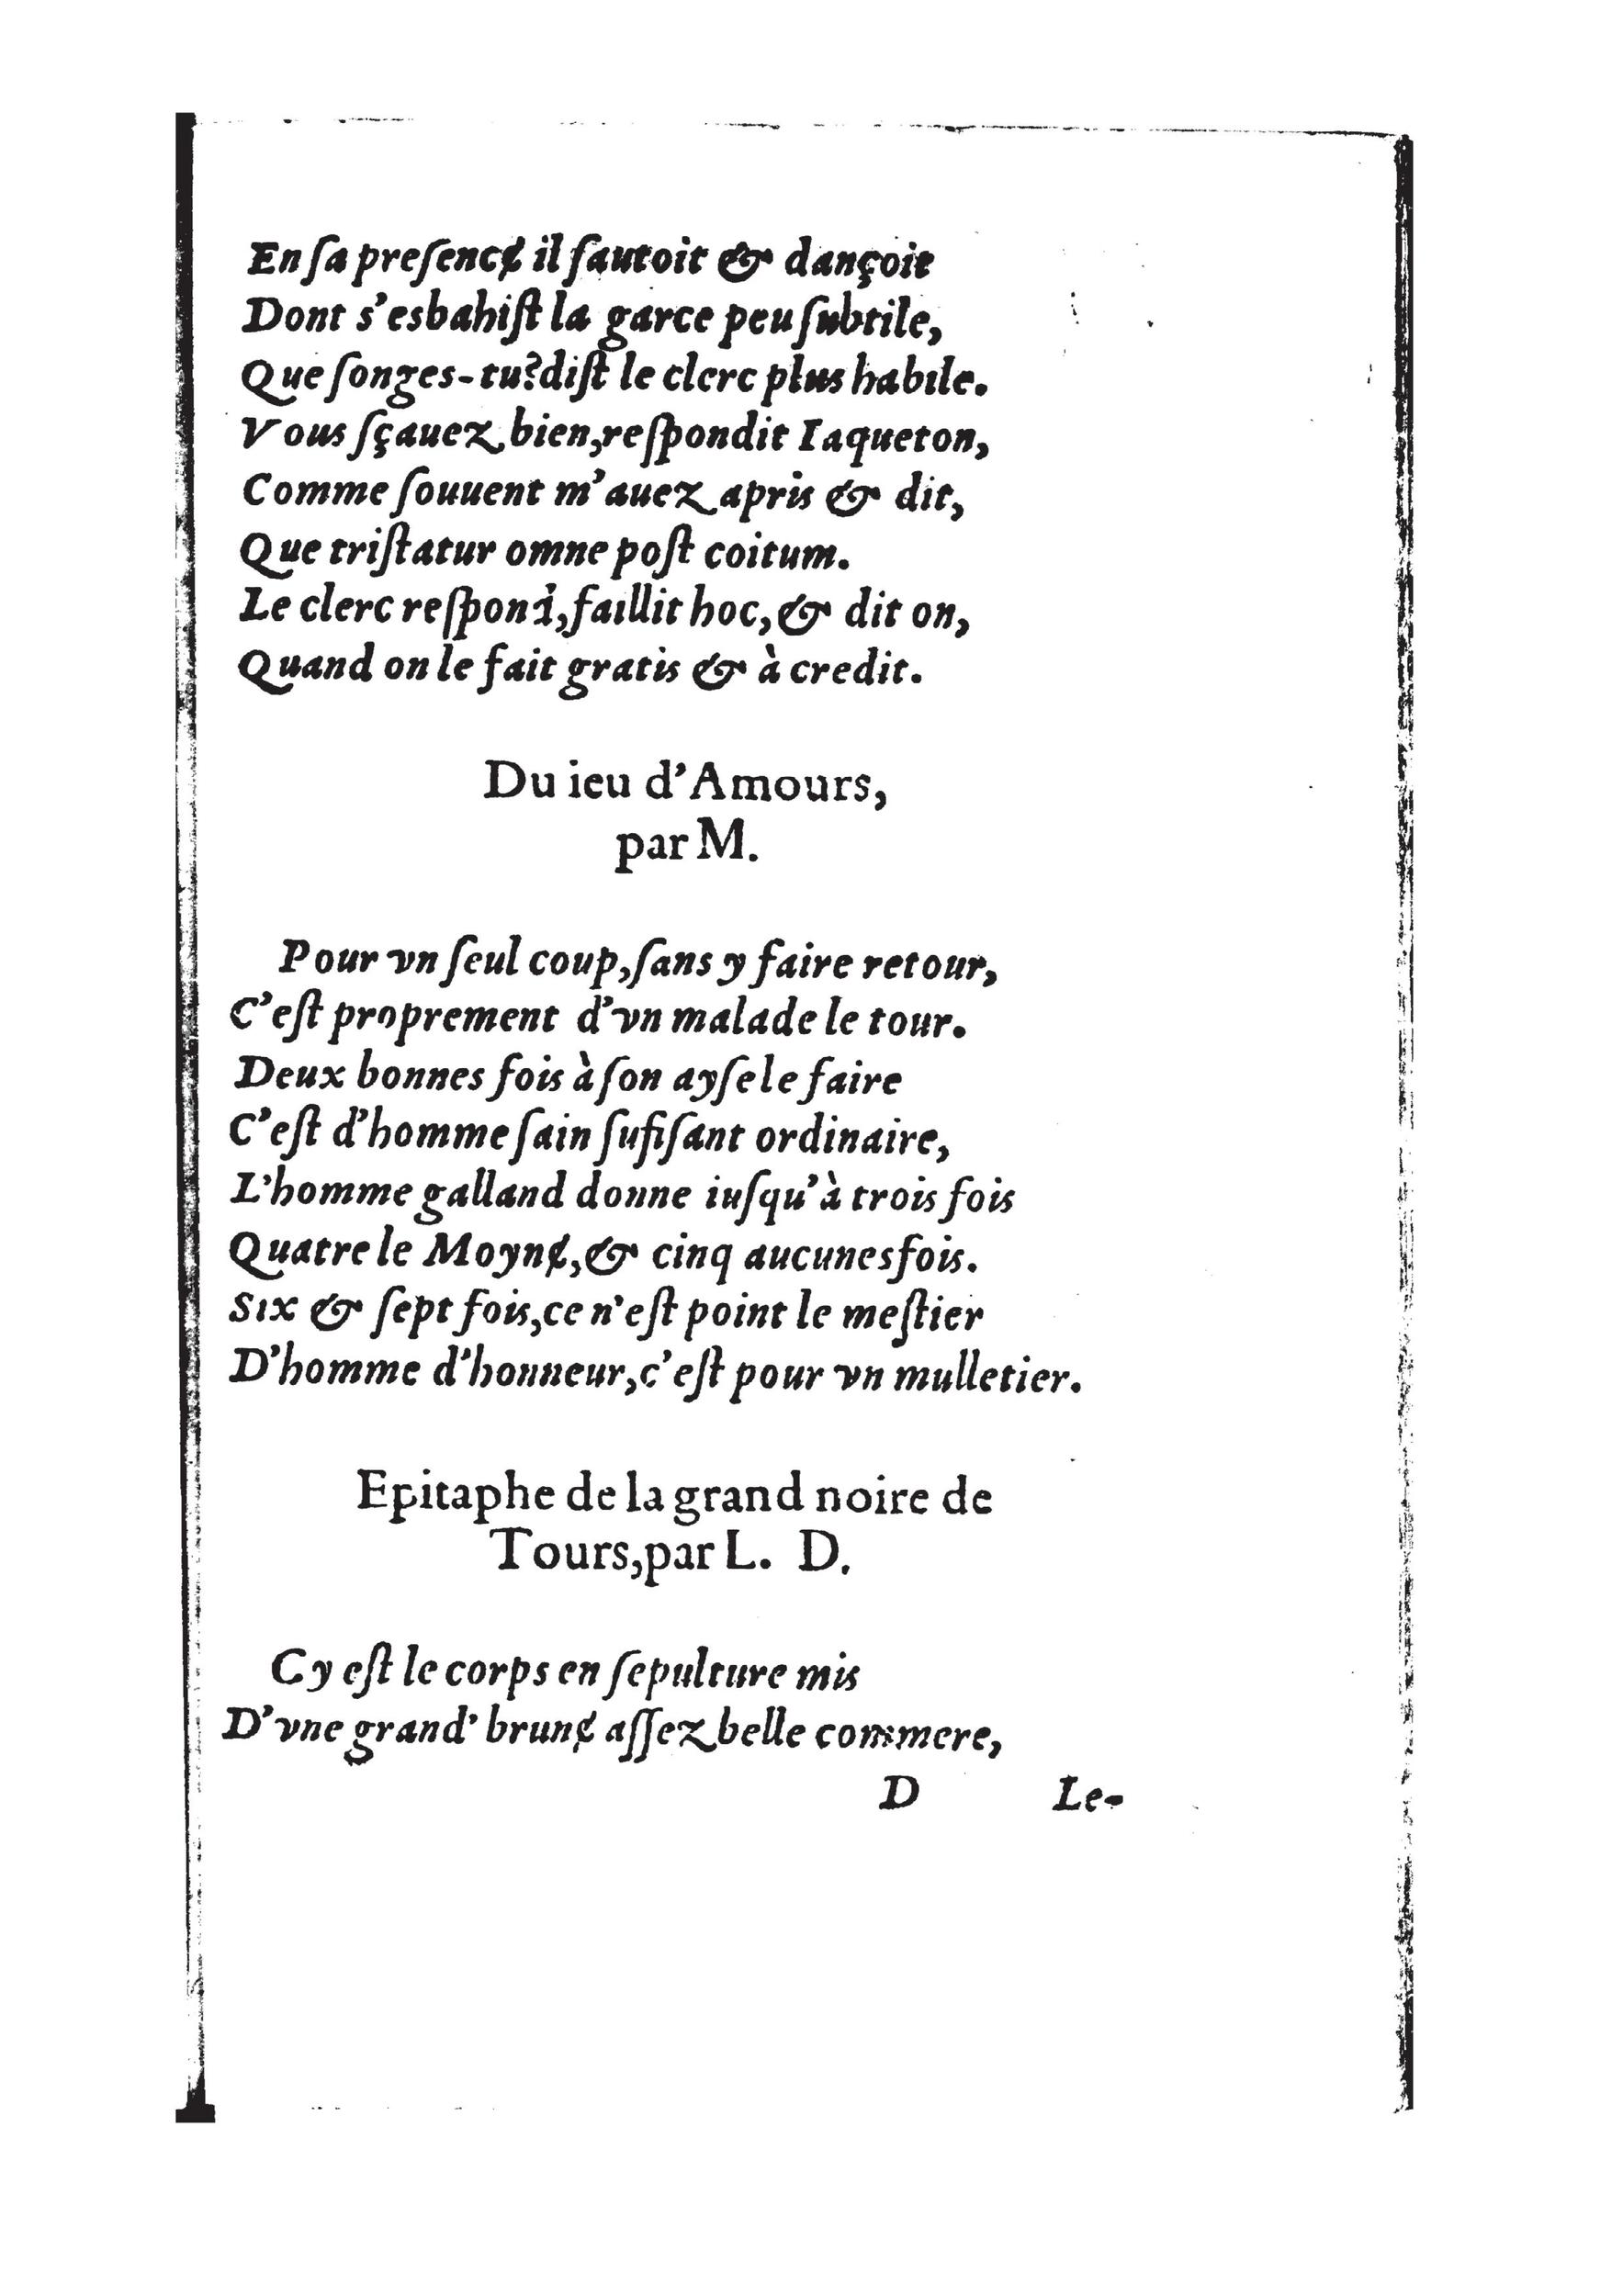 En ſa preſencɇ il ſautoit & dançoit
Dont s'esbahiſt la garce peu ſubtile,
Que ſonges-tu? diſt le clerc plus habile.
Vous ſçauez bien, reſpondit Iaqueton,
Comme ſouuent m'auez apris & dit,
Que triſtatur omne poſt coitum.
Le clerc reſpond, faillit hoc, & dit on,
Quand on le fait gratis & à credit.
Du ieu d'Amours,
par M.
Pour vn ſeul coup, ſans y faire retour,
C'eſt proprement d'vn malade le tour.
Deux bonnes fois à ſon ayſe le faire
C'eſt d'homme ſain ſufiſant ordinaire,
L'homme galland donne iuſqu'à trois fois
Quatre le Moynɇ, & cinq aucunesfois.
Six & ſept fois, ce n'eſt point le meſtier
D'homme d'honneur, c'eſt pour vn mulletier.
Epitaphe de la grand noire de
Tours, par L. D.
Cy eſt le corps en ſepulture mis
D'vne grand' brunɇ aſſez belle commere,
D Le-